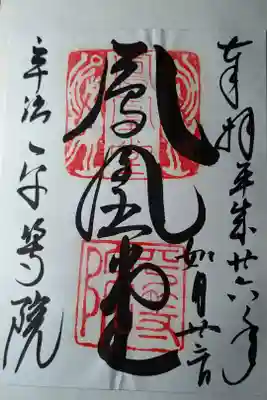 奉拝平成廿六年
如月廿二日
鳳凰堂
宇治平等院